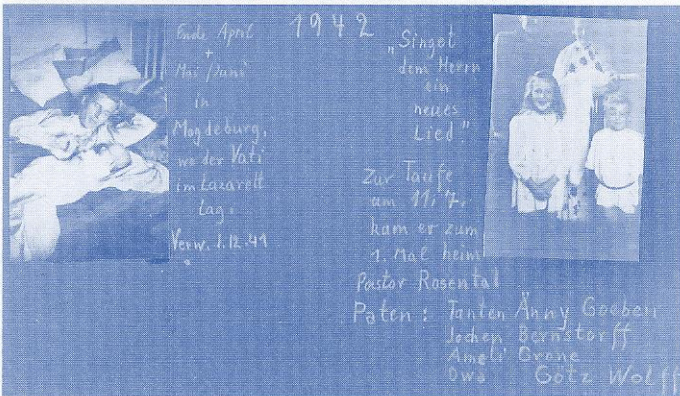 1942
Ende April
+
Mai/Juni
in
Magdeburg,
wo der Vati
im Lazarett
lag.
Verw. 1.12.41
„Singet
dem Herrn
ein
neues
Lied."
Zur Taufe
am 11.7.
kam er zum
1. Mal heim
Pastor Rosental
Paten: Tanten Änny Goeben
Jochen Bernstorff
Ameli Grone
Owo Götz Wolff